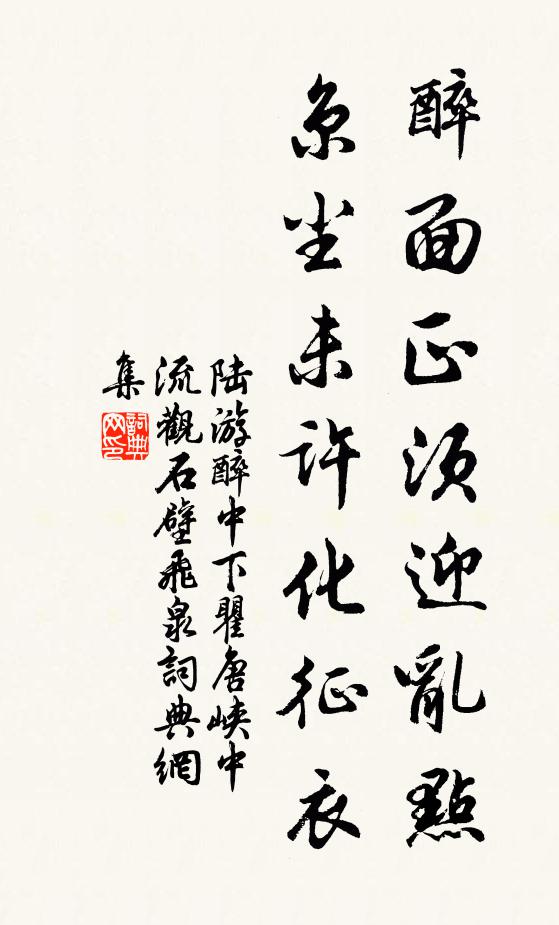 醉面正須迎亂點
京塵未許化征衣
陸游醉中下瞿唐峽中
流觀石壁飛泉詞典網
集
詞典
网印